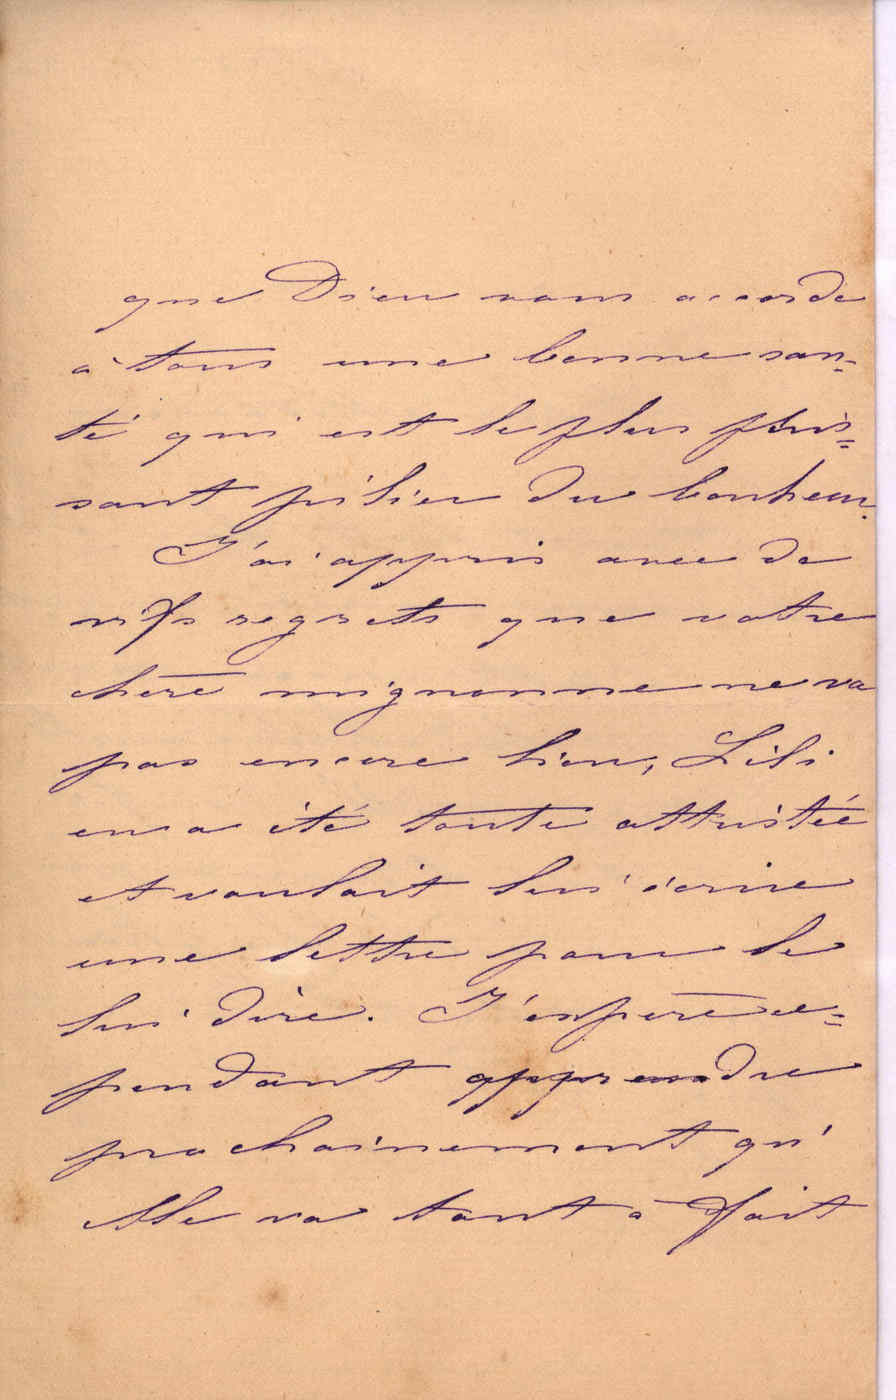 que Dieu vous accorde
à tous une bonne san=
té qui est le plus puis=
sant pilier du bonheur.
J'ai appris avec de
vifs regrets que votre
chère mignonne ne va
pas encore bien, Lili
en a été toute attristée
et voulait lui écrire
une lettre pour le
lui dire. J'espère ce=
pendant apprendre
prochainement qu'
elle va tout à fait